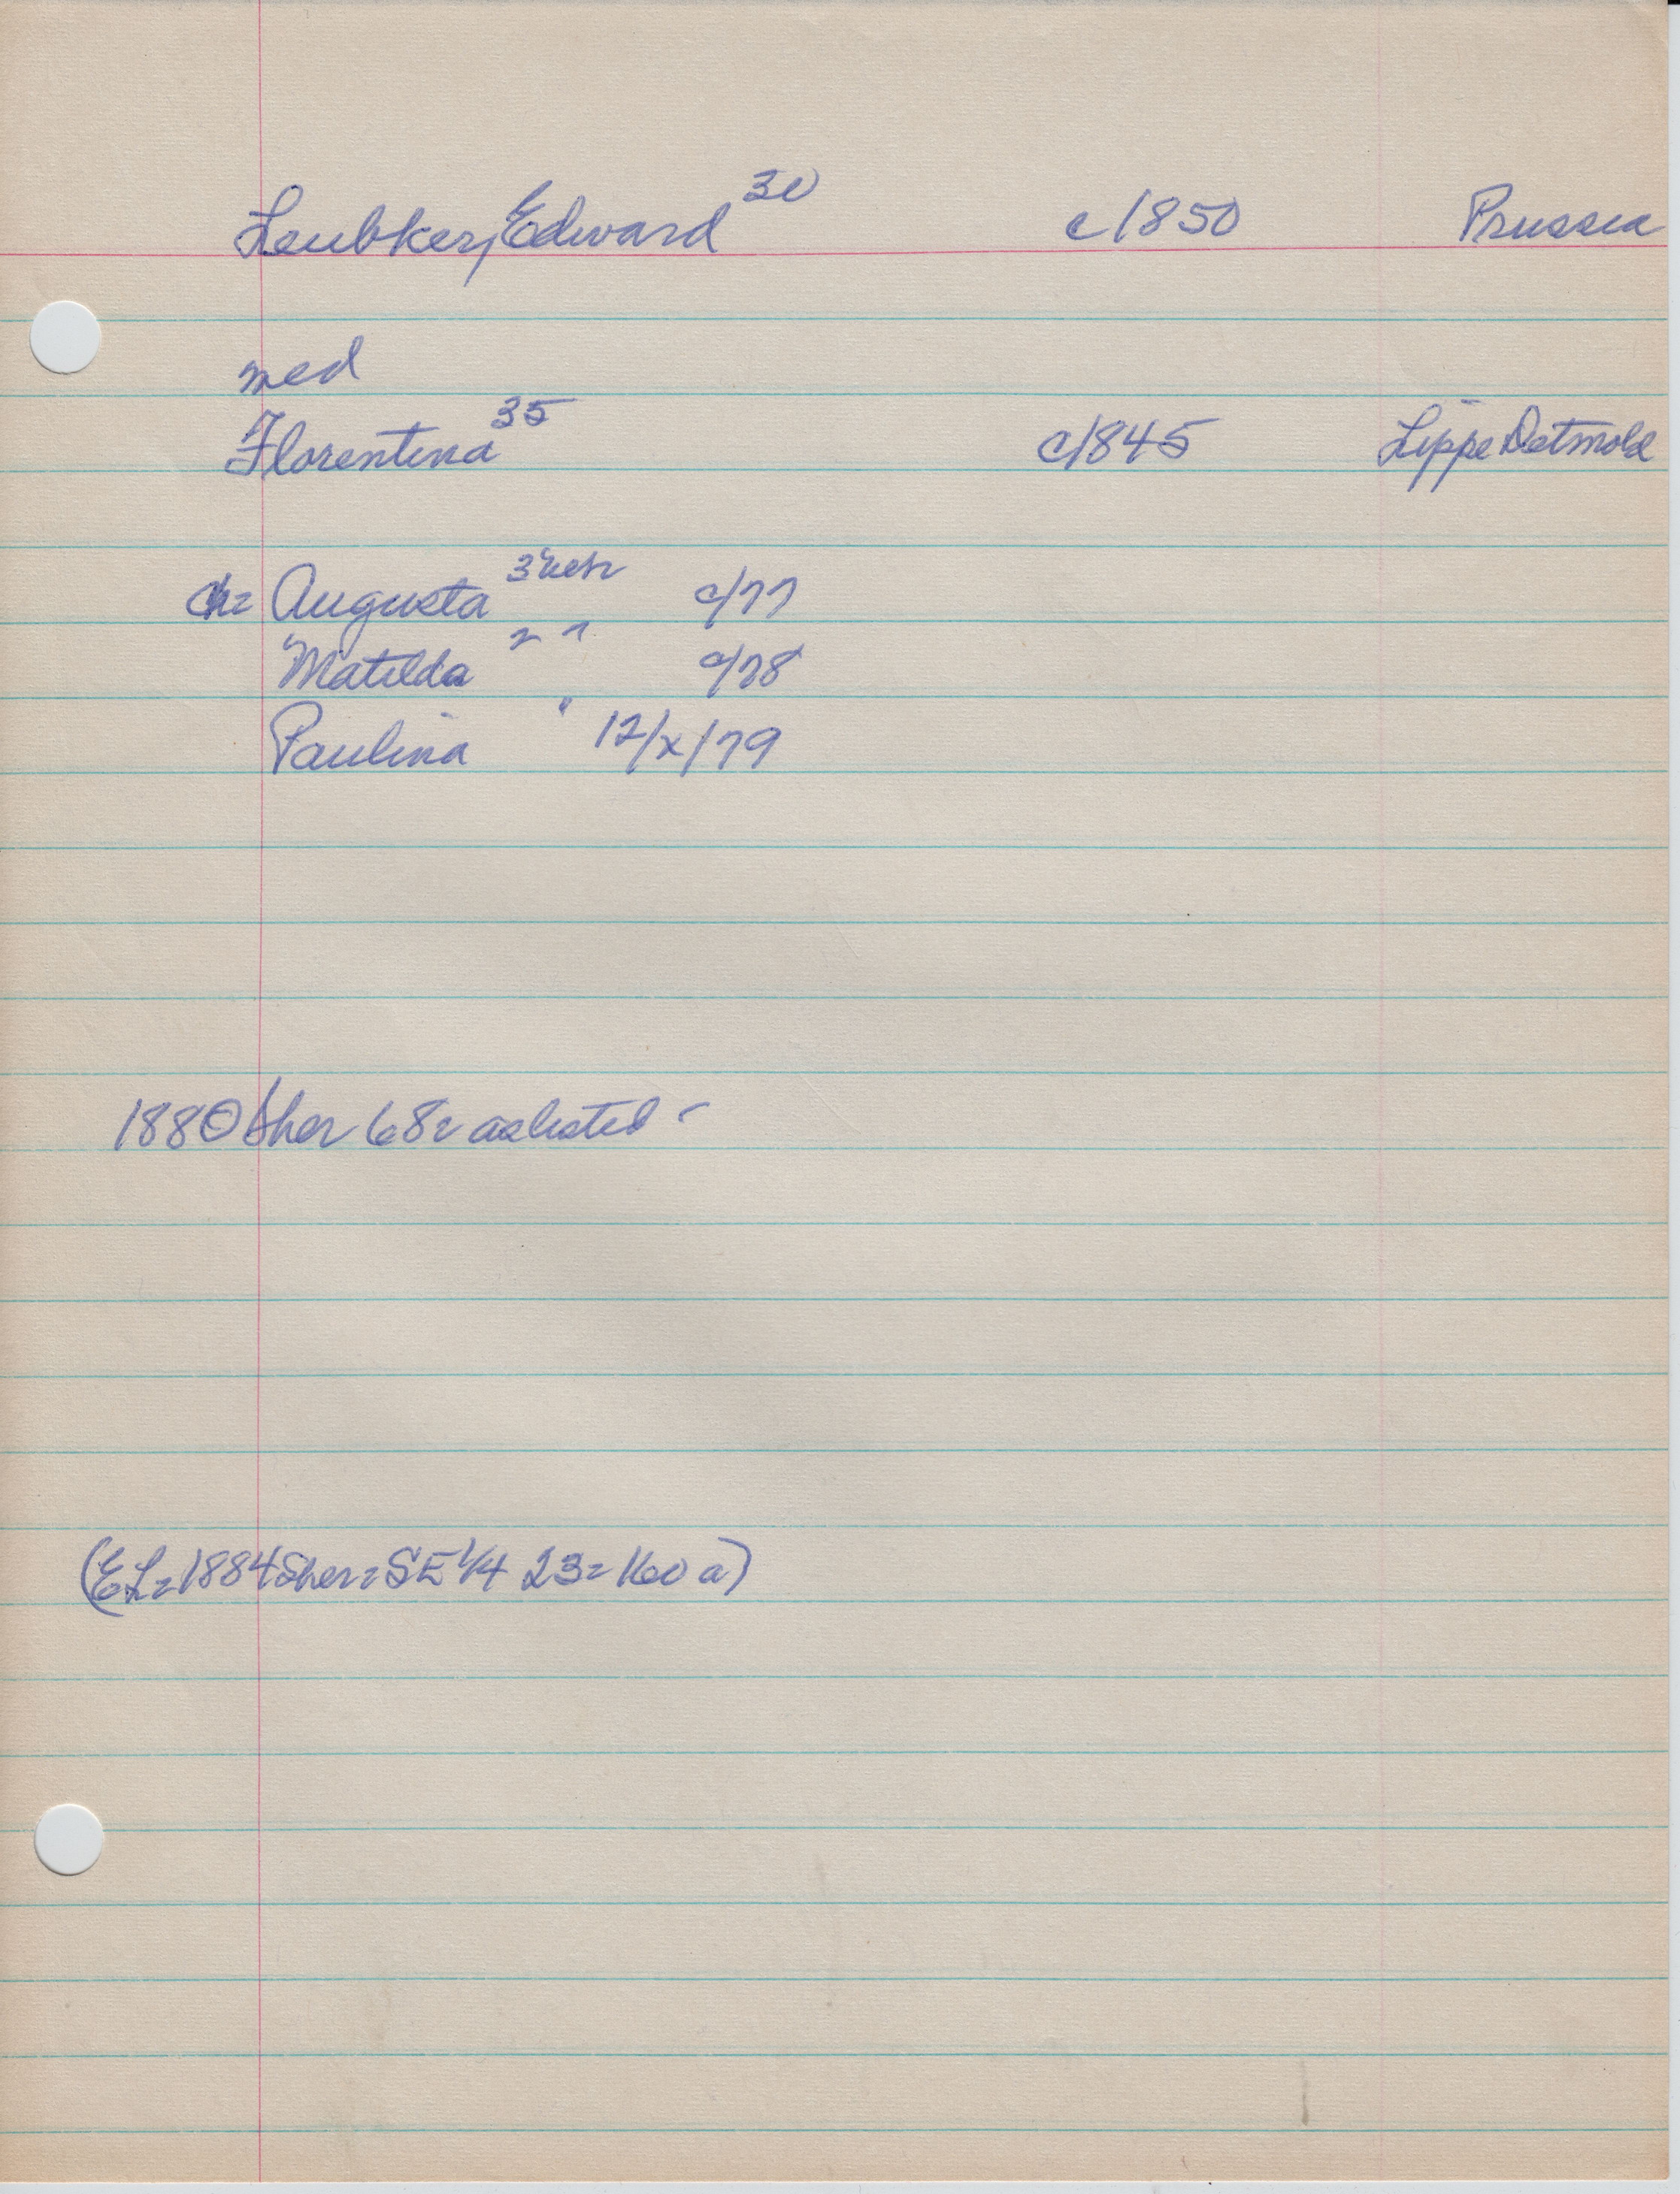 Leubker, Edward 30 c1850 Prussia
med
Florentina 35 c1845 Lippe Detmold
ch= Augusta 3 c/77
Matilda 2 " c/78
Paulina " 12/x/79
1880 Sher 68= as listed -
(EL=1884 Sher= SE 1/4 23= 160 a)